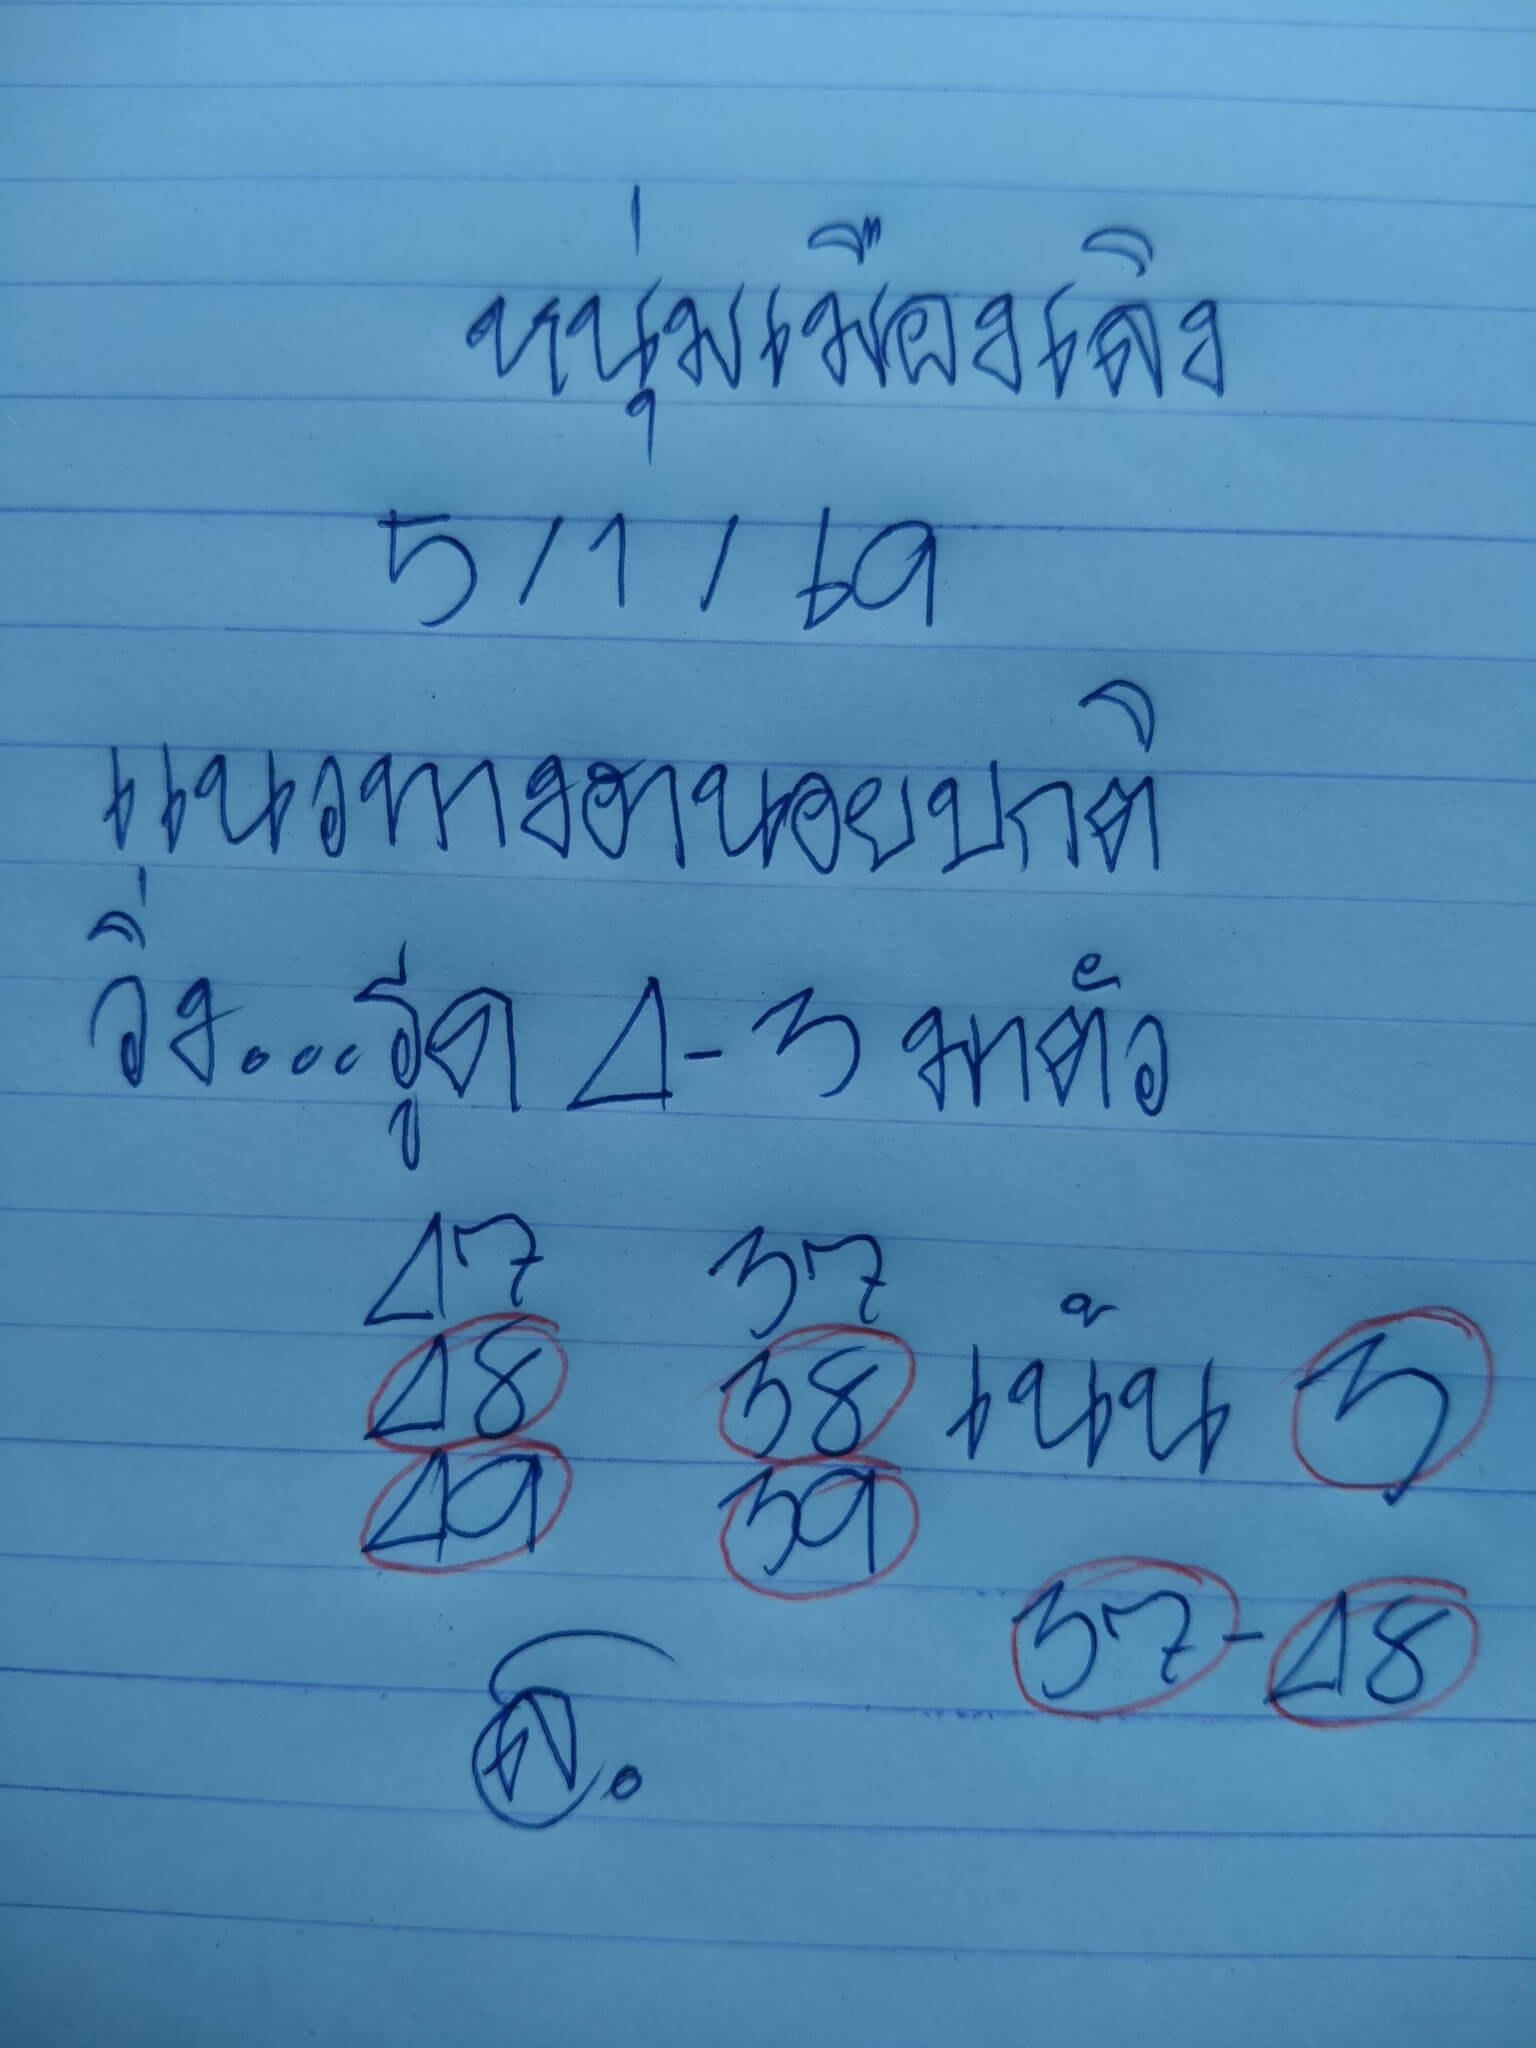 หนุ่มเมืองเลิง
5/1/69
แนวทางฮานอยปกติ
วิ่ง...รูด 4-3 มาตัว
47 37
48 38 เน้น 3
49 39
37-48